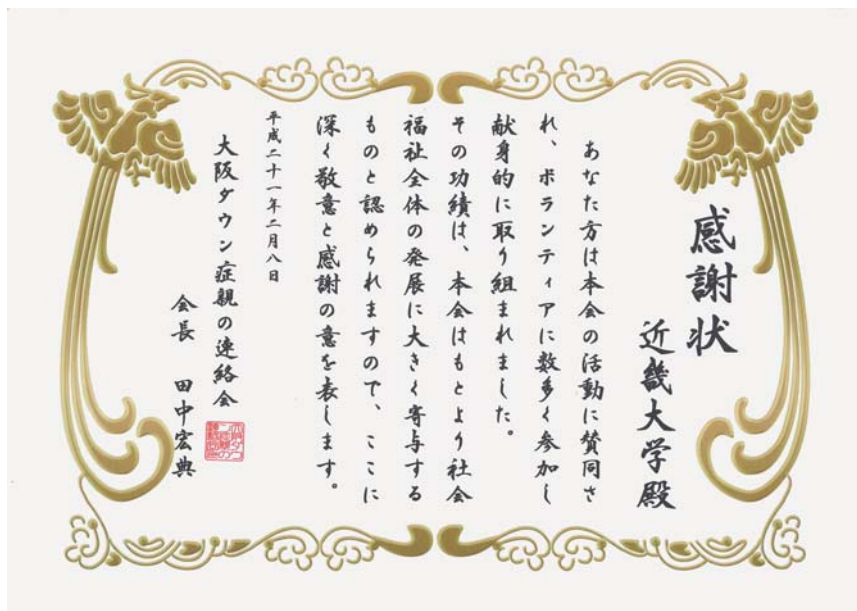 感謝状
近畿大学殿
あなた方は本会の活動に賛同さ
れ、ボランティアに数多く参加し
献身的に取り組まれました。
その功績は、本会はもとより社会
福祉全体の発展に大きく寄与する
ものと認められますので、ここに
深く敬意と感謝の意を表します。
平成二十一年二月八日
大阪ダウン症親の連絡会
会長 田中宏典